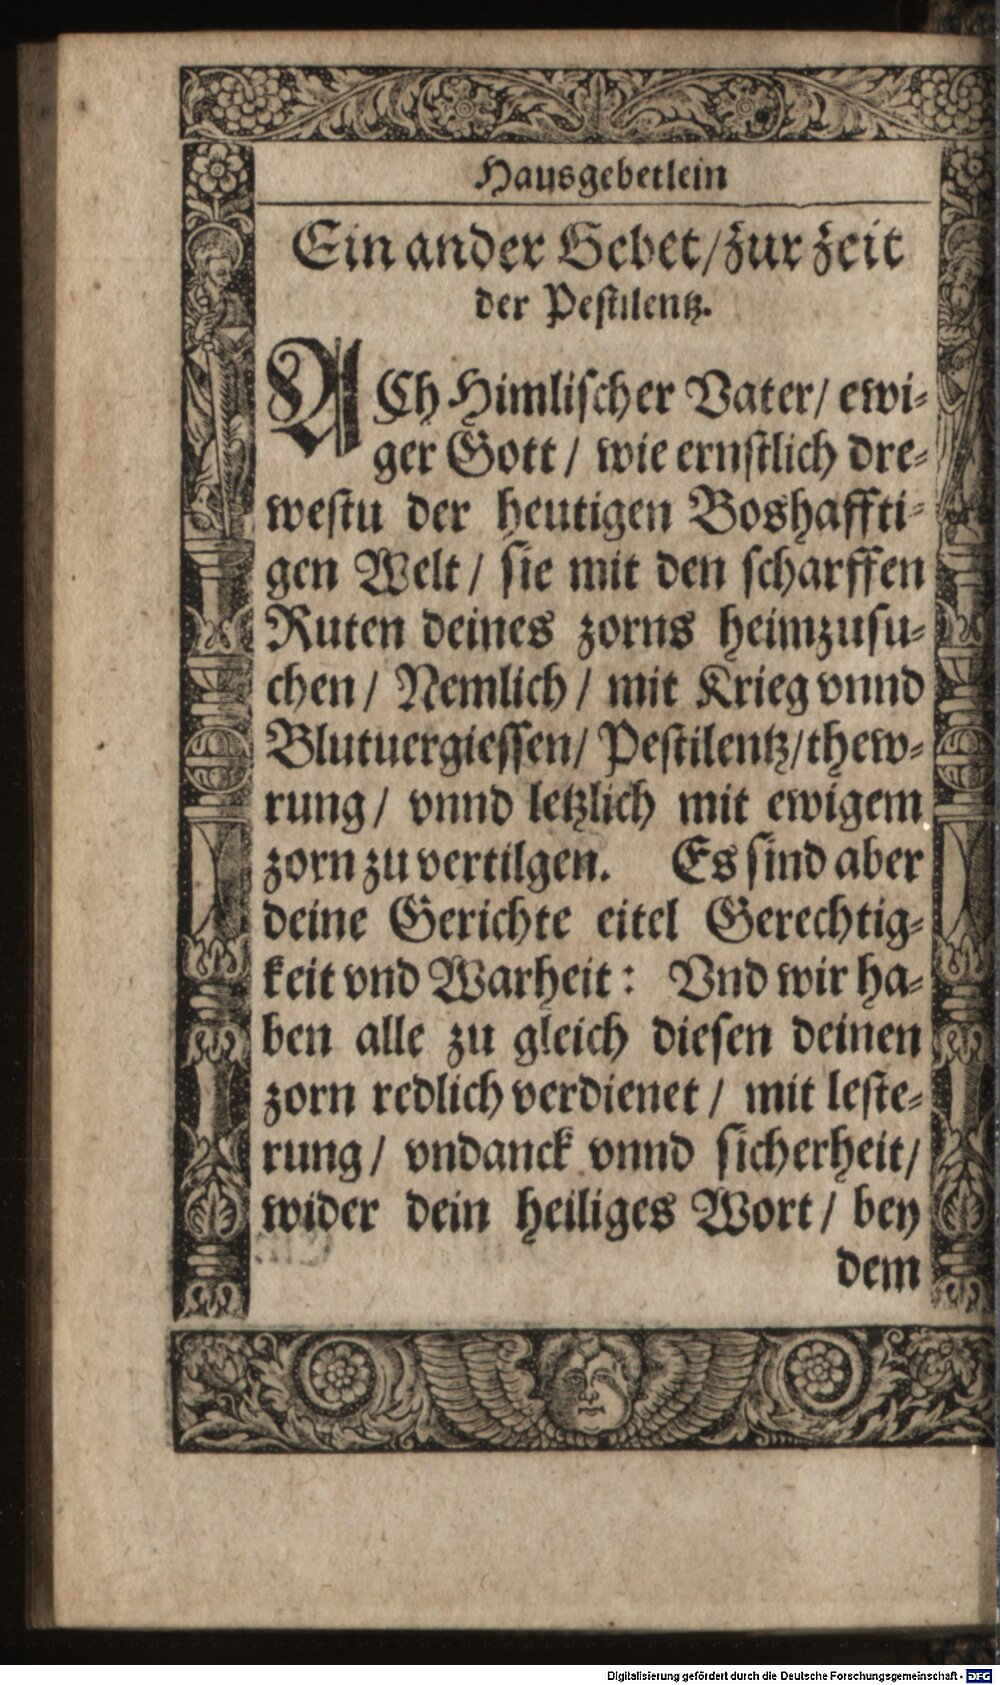 Hausgebetlein
Ein ander Gebet/zur zeit
der Pestilentz.
ACh Himlischer Vater/ ewi-
ger Gott/ wie ernstlich dre-
westu der heutigen Boshaffti-
gen Welt/ sie mit den scharffen
Ruten deines zorns heimzusu-
chen/ Nemlich/ mit Krieg vnnd
Blutuergiessen/ Pestilentz/thew-
rung/ vnnd letzlich mit ewigem
zorn zu vertilgen. Es sind aber
deine Gerichte eitel Gerechtig-
keit vnd Warheit: Vnd wir ha-
ben alle zu gleich diesen deinen
zorn redlich verdienet/ mit leste-
rung/ vndanck vnnd sicherheit/
wider dein heiliges Wort/ bey
dem
Digitalisierung gefördert durch die Deutsche Forschungsgemeinschaft - DFG